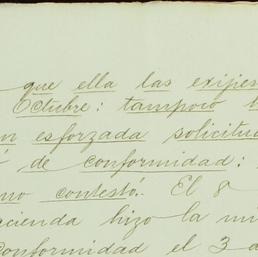 que ella las exijies
Octubre: tampoco
esforzada solicitud
de conformidad:
no contestó. El 8
acienda hizo la mi
conformidad el 3 d